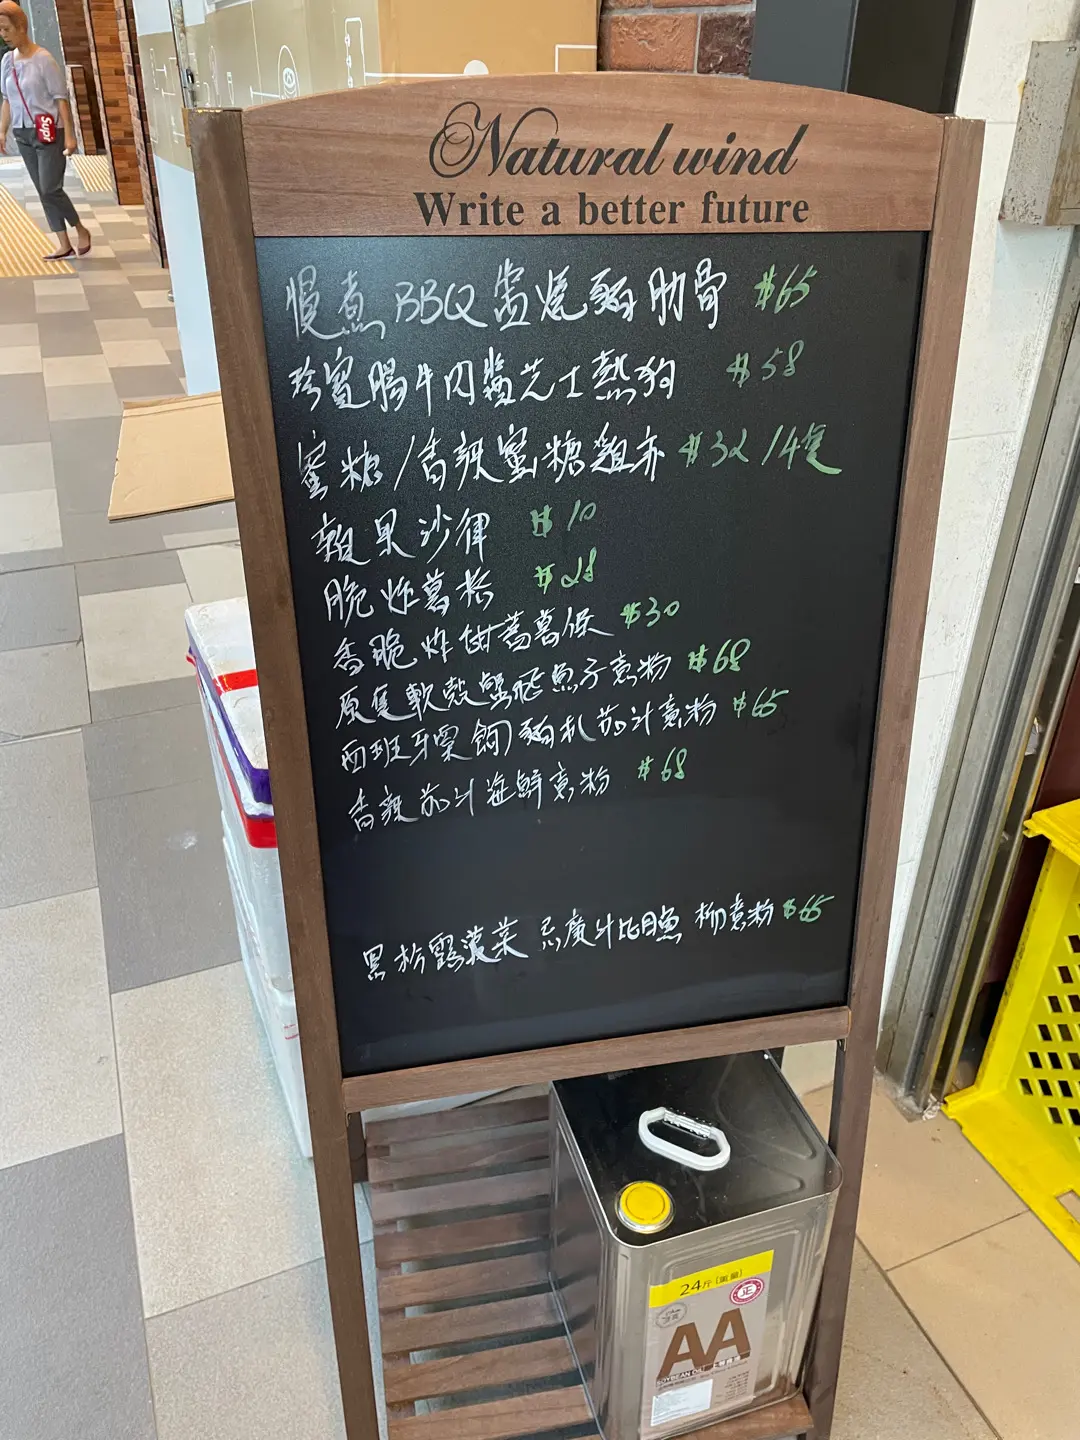 Natural wind
Write a better future
慢煮 BBQ 蜜燒豬肋骨 $65
珍寶腸牛肉醬芝士熱狗 $58
蜜糖/香辣蜜糖雞亦 $32/4隻
雜果沙律 $10
脆炸薯格 $28
香脆炸甜蕃薯條 $30
原隻軟殼蟹飛魚子意粉 $68
西班牙黑飼豬扒茄汁意粉 $65
香辣茄汁海鮮意粉 $68
黑松露菠菜忌廉汁比目魚柳意粉 $65
Supr
24斤(重量)
正
AA
SOYBEAN OIL